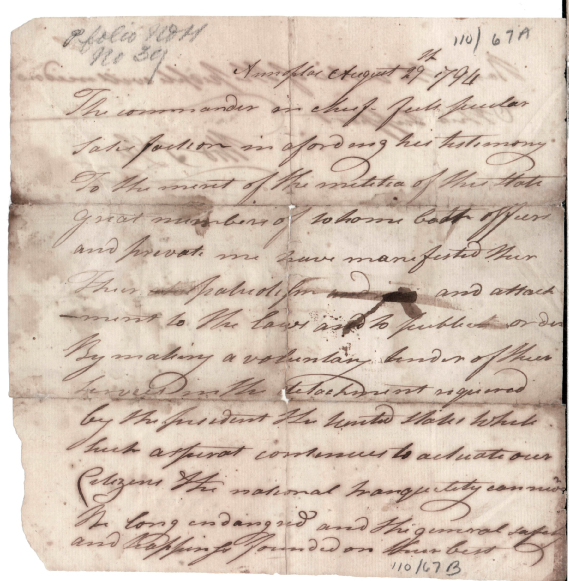 P folio No 11
No 39
110/ 67A
Annoplas August 29th 1794
The commander in chief feels peculiar
Satisfaction in afording his testimony
To the merit of the militia of this state
great numbers of whome both officers
and private me have manifested their
Their patriotism and and attach
ment to the laws and to publick order
By making a voluntary tender of their
servises in the detachment required
by the president the united states while
such a spirat continues to actuate our
Citizens the national tranquility cannot
Be long endangred and the general safety
and Happiness founded on their best
110/67B